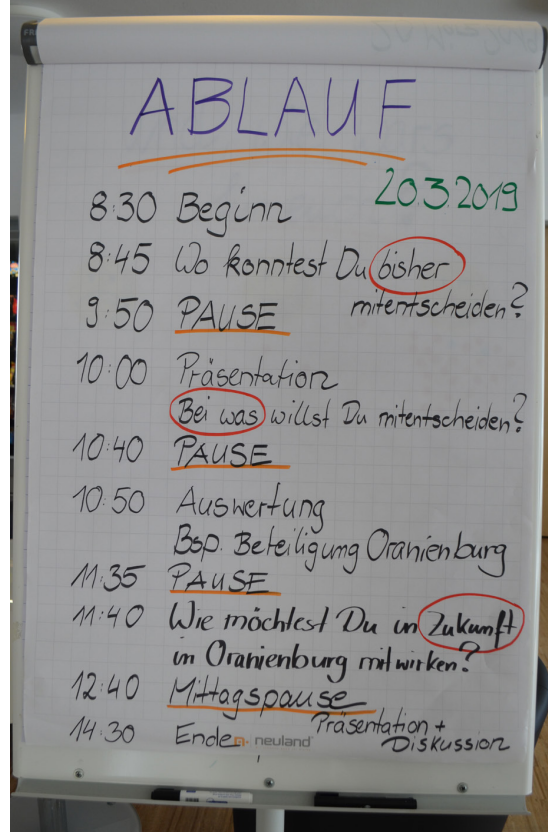 ABLAUF
20.3.2019
8:30 Beginn
8:45 Wo konntest Du bisher
mitentscheiden?
9:50 PAUSE
10:00 Präsentation
Bei was willst Du mitentscheiden?
10:40 PAUSE
10:50 Auswertung
Bsp. Beteiligung Oranienburg
11:35 PAUSE
11:40 Wie möchtest Du in Zukunft
in Oranienburg mitwirken?
12:40 Mittagspause
Präsentation +
Diskussion
14:30 Ende
neuland